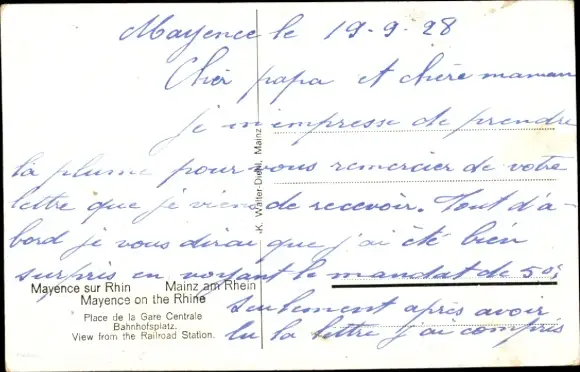 Mayence le 19-9-28
Cher papa et chère maman
je m'empresse de prendre
la plume pour vous remercier de votre
lettre que je viens de recevoir. Tout d'a-
bord je vous dirai que j'ai été bien
surpris en voyant le mandat de
seulement après avoir
lu la lettre j'ai compris
K. Walter-Diehl, Mainz
Mayence sur Rhin Mainz am Rhein
Mayence on the Rhine
Place de la Gare Centrale
Bahnhofsplatz.
View from the Railroad Station.